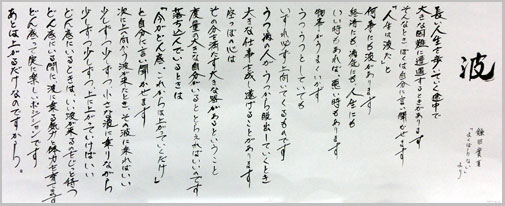 波
鎌田實
「がんばらない」
より
長い人生を歩いていく途中で
大きな困難に遭遇するときがあります
そんなとき ぼくは自分に言い聞かせます
「人生は波だ」と
何事にも波があります
経済にも 病気にも 人生にも
いい時もあれば 悪い時もあります
物事がうまくいかず
うつうつとしていても
いずれ必ず上向いてくるものです
うつ病の人が うつから脱出していくとき
大きな仕事を成し遂げることがあります
座っぽの心は
その分満たす大きな器があるということ
度量の大きな自分がいるととらえればいいのです
落ち込んでいるときは
「今がどん底、これからは上がっていくだけ」
と自分に言い聞かせます
次に上の向かう波が来たとき、その波に乗ればいい
少しずつ少しずつ 小さな波に乗りながら
少しずつ 少しずつ上に上がっていけばいい
どん底にいるときは いい波が来るまでじっと待つ
どん底にいる間に 波に乗る感力と体力を育てます
どん底って実に楽しいポジションです
あとは上がるだけなのですから。